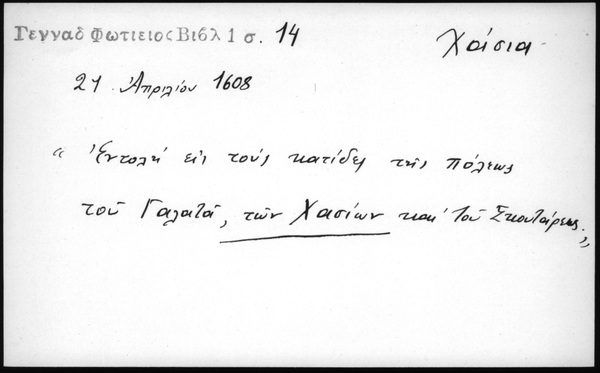 Γενναδ Φωτιειος Βιβλ 1 σ. 14
Χάσια
21 Ἀπριλίου 1608
“ Ἐντολὴ εἰς τοὺς κατίδες τῆς πόλεως
τοῦ Γαλατᾶ, τῶν Χασίων καὶ τοῦ Σκουτάρεως. „